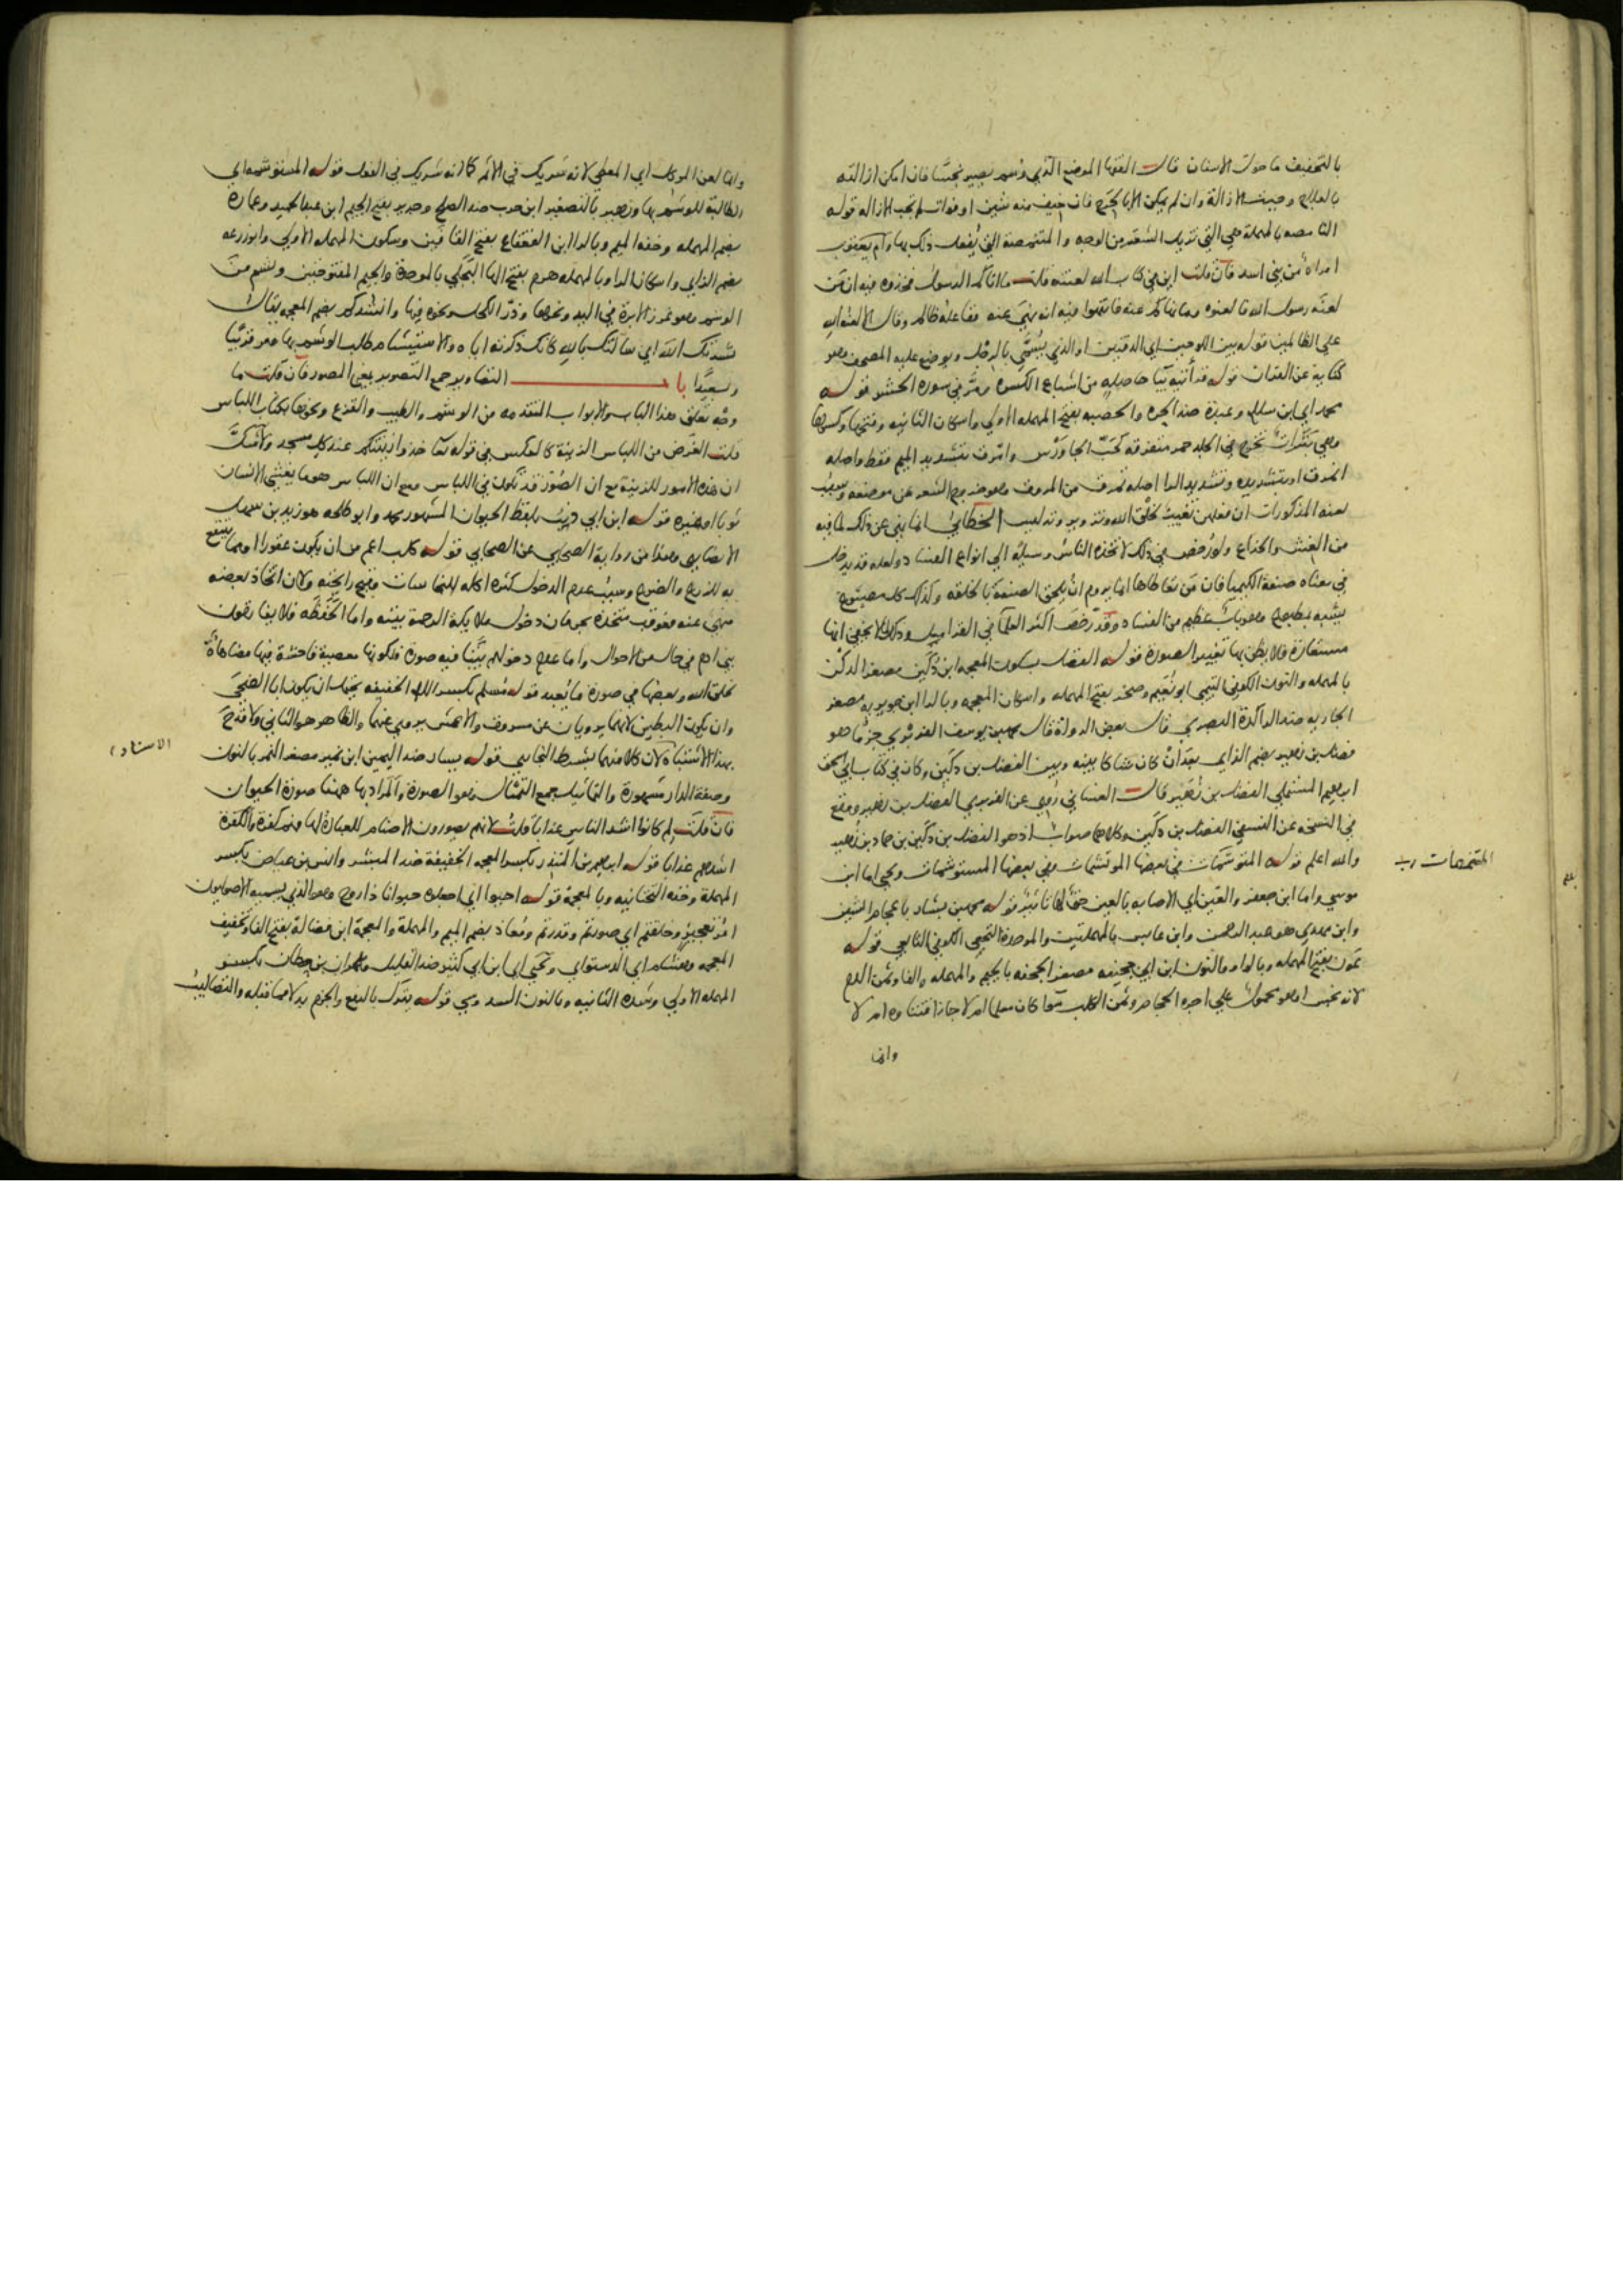 بالتخفيف ما حول الاسنان قال الفقها الموضع الذي وشم يصير نجسا فان امكن ازالته
بالعلاج وجبت الازالة وان لم يمكن الا بالجرح فان خيف منه شين او فوات لم تجب الازاله قوله
النامصه بالمهملة هي التي تزيل الشعر من الوجه والمتنمصة التي يُفعل ذلك بها وام يعقوب
امراة من بني اسد فان قلت اين في كتاب الله لعنته قلت ما اتاكم الرسول فخذوه فيه ان من
لعنه رسول الله فالعنوه وما نهاكم عنه فانتهوا فيه انه نهى عنه ففاعله ظالم وقال الا لعنة الله
على الظالمين قوله بين اللوحين اي الدفتين او الذي يُسمّى بالرحل ويوضع عليه المصحف وهو
كناية عن القران قوله قرأتيه بيا حاصله من اشباع الكسرة ومرّ في سورة الحشر قوله
محمد اي ابن سلام وعبدة ضد الحره والحصبه بفتح المهمله الاولى واسكان الثانيه وفتحها وكسرها
وهي بثرات تخرج في الجلد حمر متفرقه كحَبّ الجاوَرْس وامّرق بتشديد الميم فقط واصله
انمرق او بتشديده وتشديد الرا اصله تمرق من المروق وهو خروج الشعر عن موضعه وسبب
لعنه المذكورات ان فعلهن تغيير لخلق الله وتزوير وتدليس الخطابي انما نهى عن ذلك لما فيه
من الغش والخداع ولو رُخص في ذلك لاتخذه الناس وسيلة الى انواع الفساد ولعله قد يدخل
في معناه صنعة الكيميا فان من تعاطاها انما يروم ان يُلحق الصنعة بالخلقه وكذلك كل مصنوع
يشبه بمطبوع وهو باب عظيم من الفساد وقد رخّص اكثر العلما في القراميل وذلك لانه لا يخفى انها
مستعارة فلا يظن بها تغيير الصورة قوله الفضل بسكون المعجمه ابن دُكَين مصغر الدكن
بالمهمله والنون الكوفي التيمي ابو نُعيم وصخر بفتح المهمله واسكان المعجمه وبالرا ابن جويريه مصغر
الجاريه ضد الراكدة البصري قال بعض الرواة قال محمد بن يوسف الفربري جزما هو
فضل بن زهير بضم الزاي بعد ان كان شاكا بينه وبين الفضل بن دكين وكان في كتاب ابي اسحق
ابراهيم المستملي الفضل بن زُهَير قال الغساني رُوي عن الفربري الفضل بن زهير ووقع
في النسخه عن النسفي الفضل بن دكين وكلاهما صواب اذ هو الفضل بن دكين بن حماد بن زهير
والله اعلم قوله المتوشمات في بعضها الموتشمات وفي بعضها المستوشمات ويحيى اما ابن
المتنمصات
موسى واما ابن جعفر والعين اي الاصابه بالعين حق لها تاثير قوله محمد بن بشار باعجام الشين
وابن مهدي هو عبد الرحمن وابن عابس بالمهملتين والموحدة النخعي الكوفي التابعي قوله
عون بفتح المهمله وبالواو والنون ابن ابي جحيفه مصغر الجحفه بالجيم والمهمله والفا وثمن الدم
لانه نجس او هو محمول على اجرة الحجام وثمن الكلب سوا كان معلما ام لا جاز اقتناوه ام لا
وانما
وانما لعن الموكل اي المعطي لانه شريك في الاثم كما انه شريك في الفعل قوله المستوشمه اي
الطالبة للوشم بها وزهير بالتصغير ابن حرب ضد الصلح وجرير بفتح الجيم ابن عبد الحميد وعمارة
بضم المهمله وخفه الميم وبالرا ابن القعقاع بفتح القافين وسكون المهمله الاولى وابو زرعه
بضم الزاي واسكان الرا وبالمهمله هرم بفتح الها البجلي بالموحدة والجيم المفتوحتين ولا تشمن من
الوشم وهو غرز الابرة في اليد ونحوها وذرّ الكحل ونحوه فيها وانشدكم بضم المعجمه يقال
نشدتك الله اي سالتك بالله كانك ذكرته اياه والاستيشام طلب الوشم بها ومر قريبا
وبعيدا باب التصاوير جمع التصوير بمعنى المصور فان قلت ما
وجه تعلق هذا الباب والابواب المتقدمه من الوشم والطيب والقزع ونحوها بكتاب اللباس
قلت الغرض من اللباس الزينة كالعكس في قوله تعالى خذوا زينتكم عند كل مسجد ولا شك
ان هذه الامور للزينة مع ان الصُوَر قد تكون في اللباس ومع ان اللباس هو ما يغشى الانسان
ثوبا او غيره قوله ابن ابي ذيب بلفظ الحيوان المشهور محمد وابو طلحه هو زيد بن سهل
الانصاري وهذا من رواية الصحابي عن الصحابي قوله كلب اعم من ان يكون عقورا او مما ينتفع
به للزرع والضرع وسبب عدم الدخول كثرة اكله للنجاسات وقبح رايحته ولان اتخاذ بعضه
منهي عنه فعوقب متخذه بحرمان دخول ملايكة الرحمة بيته واما الحفظه فلا يفارقون
بني ادم في حال من الاحوال واما عدم دخولهم بيتا فيه صورة فلكونها معصية فاحشة فيها مضاهاة
لخلق الله وبعضها في صورة ما يُعبد قوله مُسلم بكسر اللام الخفيفه يحتمل ان يكون ابا الضحى
وان يكون البطين لانهما يرويان عن مسروق والاعمش يروي عنهما والظاهر هو الثاني ولا قدح
الاسناد
بهذا الاشتباه لان كلا منهما بشرط البخاري قوله يسار ضد اليمين ابن نمير مصغر النمر بالنون
وصفة الدار مشهورة والتماثيل جمع التمثال وهو الصورة والمراد بها ههنا صورة الحيوان
فان قلت لم كانوا اشد الناس عذابا قلت لانهم يصورون الاصنام للعبادة لها وهم كفرة والكفرة
اشدهم عذابا قوله ابراهيم بن المنذر بكسر المعجمه الخفيفة ضد المبشر وانس بن عياض بكسر
المهملة وخفه التحتانيه وبالمعجمه قوله احيوا اي اجعلوه حيوانا ذا روح وهو الذي يسميه الاصوليون
امر تعجيز وخلقتم اي صورتم وقدرتم ومُعاذ بضم الميم والمهملة والمعجمة ابن فضالة بفتح الفا وتخفيف
المعجمه وهشام اي الدستوائي ويحيى اي ابن ابي كثير ضد القليل وعمران بن حطان بكسر
المهمله الاولى وشدة الثانيه وبالنون السدوسي قوله يترك بالرفع والجزم بدلا مما قبله والتصاليب